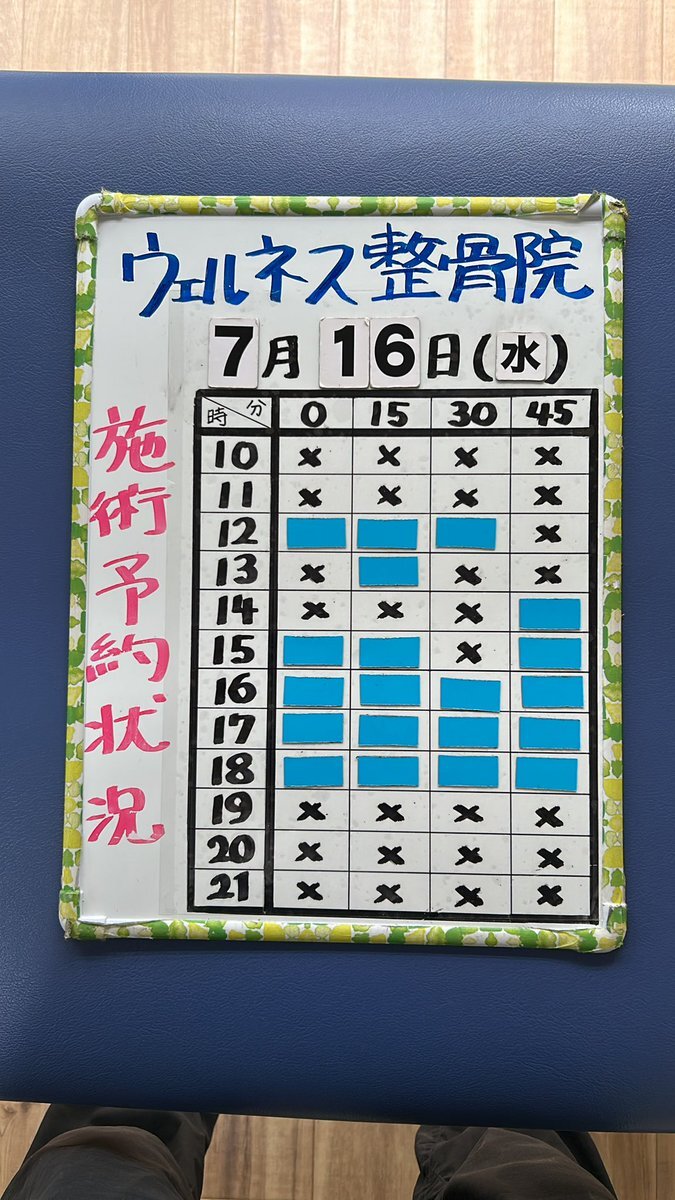 ウェルネス整骨院
7月16日(水)
施術予約状況
時 分 0 15 30 45
10 × × × ×
11 × × × ×
12 ×
13 × × ×
14 × × ×
15 ×
16
17
18
19 × × × ×
20 × × × ×
21 × × × ×